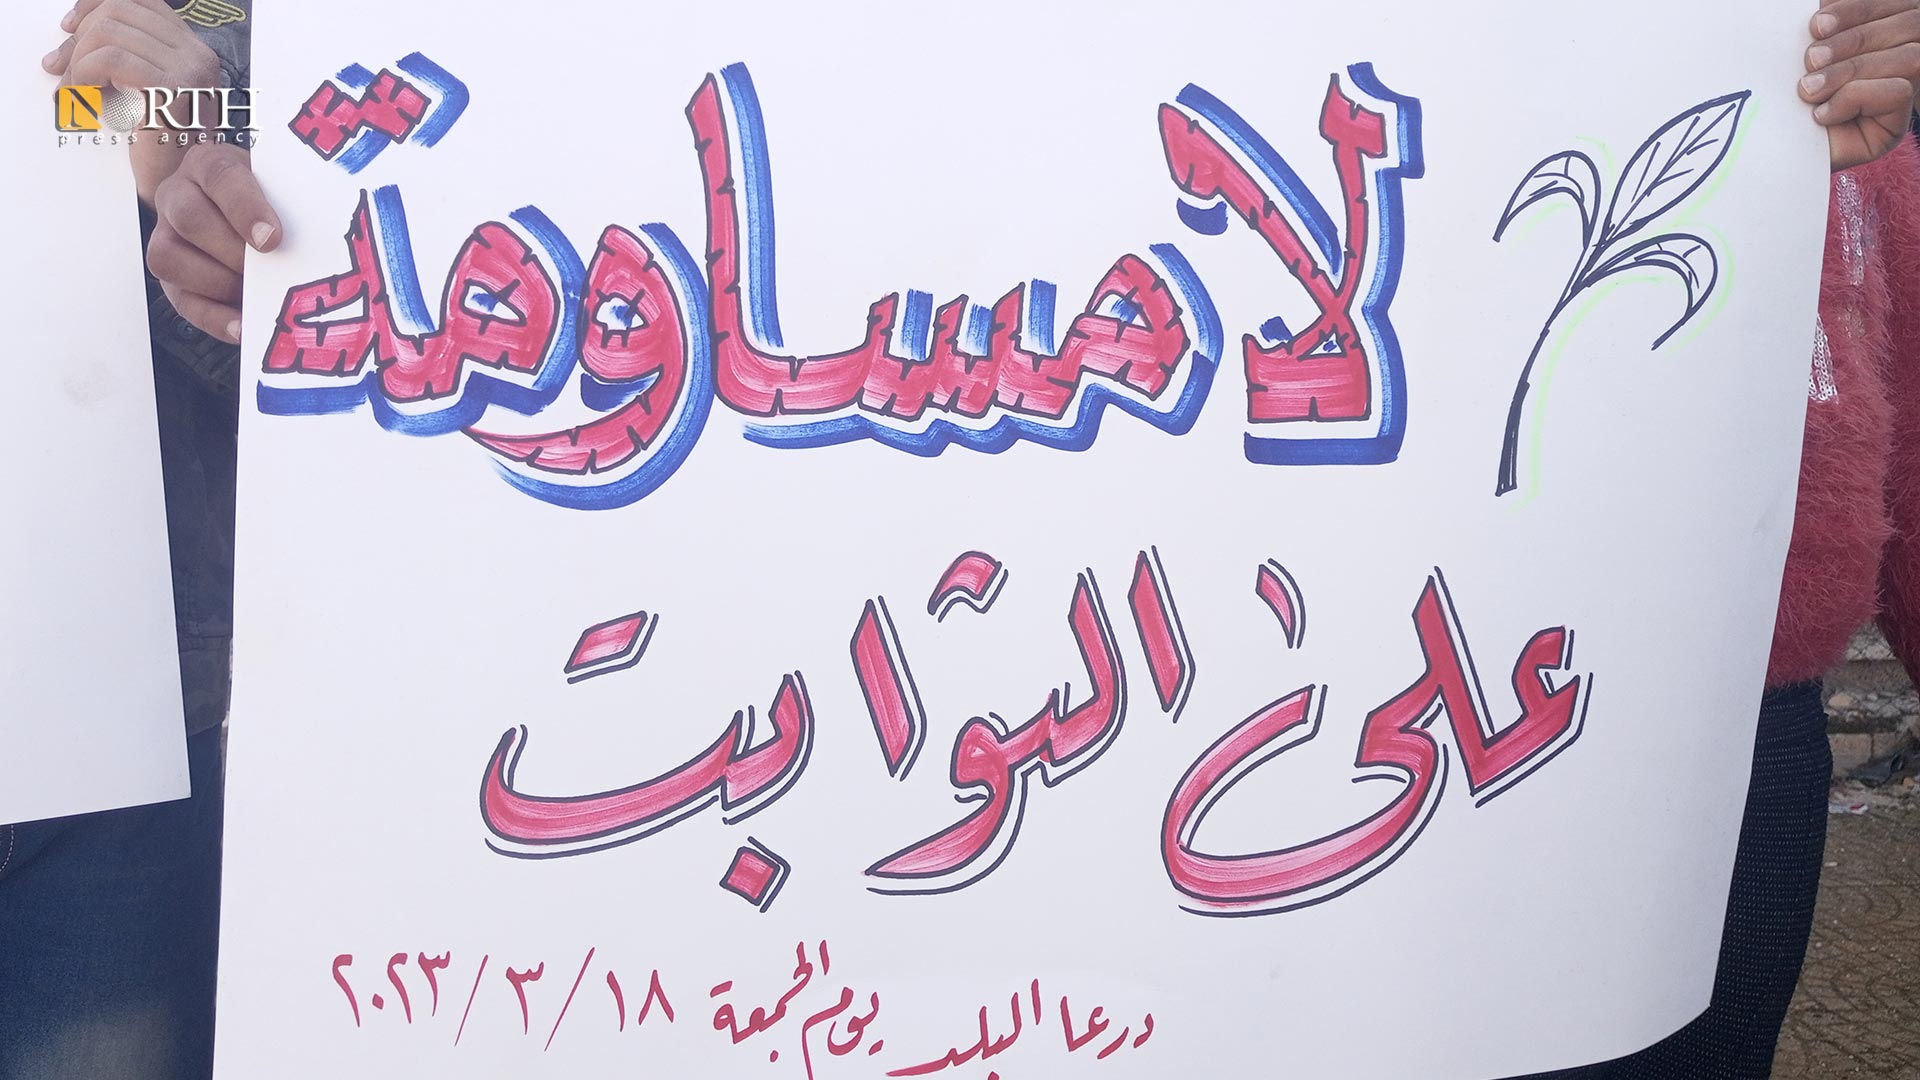 NORTH
press agency
لا مساومة
على الثوابت
درعا البلد يوم الجمعة ١٨/٣/٢٠٢٣